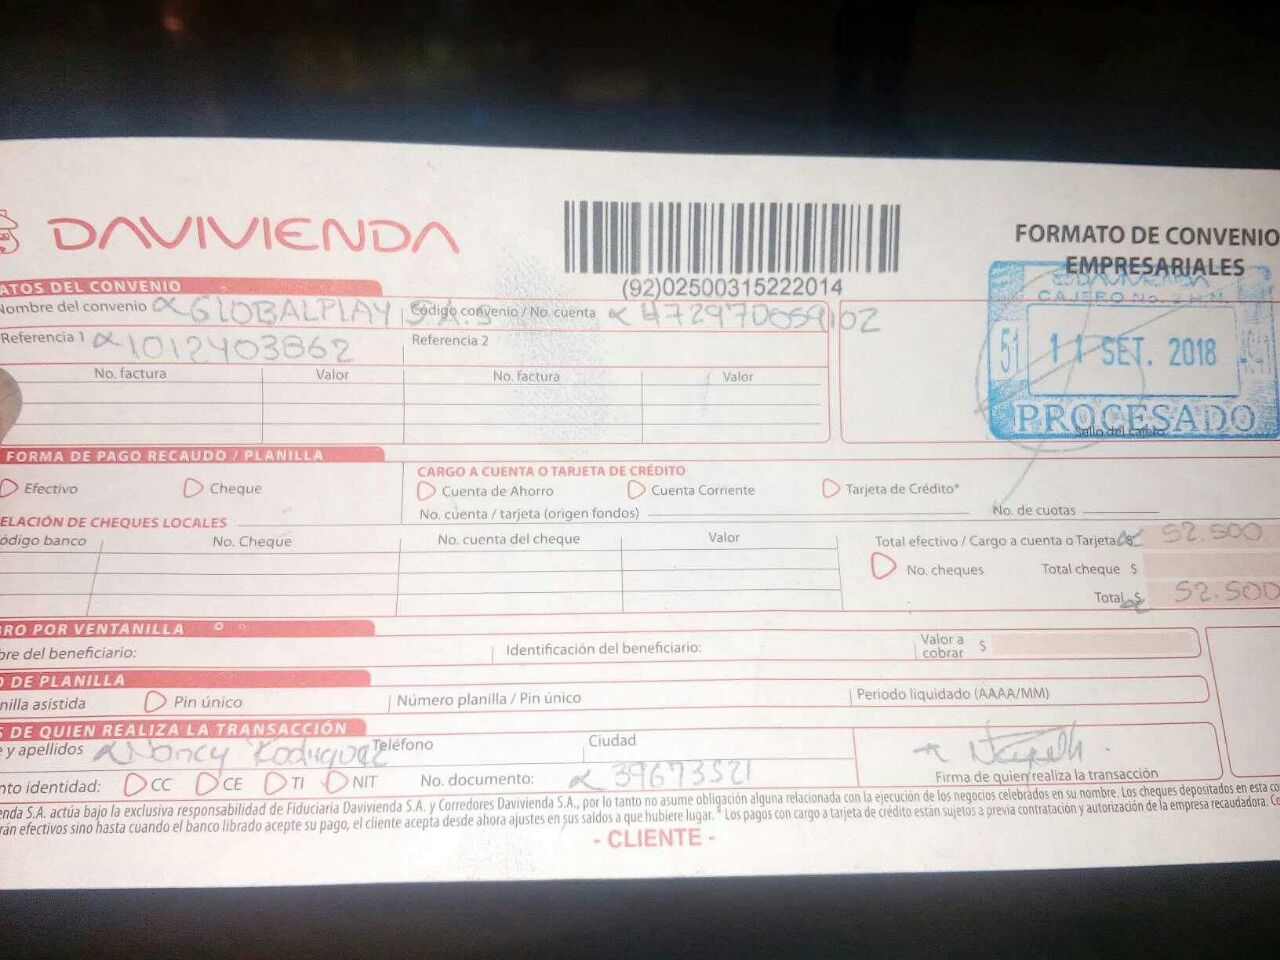 DAVIVIENDA
(92)02500315222014
FORMATO DE CONVENIO
EMPRESARIALES
ATOS DEL CONVENIO
Nombre del convenio GLOBALPLAY S.A.S Código convenio / No. cuenta
Referencia 1 1012403862 Referencia 2
No. factura Valor No. factura Valor
CAJERO No.
51 11 SET. 2018
PROCESADO
Sello del cajero
FORMA DE PAGO RECAUDO / PLANILLA
CARGO A CUENTA O TARJETA DE CRÉDITO
Efectivo Cheque Cuenta de Ahorro Cuenta Corriente Tarjeta de Crédito*
No. cuenta / tarjeta (origen fondos) No. de cuotas
ELACIÓN DE CHEQUES LOCALES
ódigo banco No. Cheque No. cuenta del cheque Valor
Total efectivo / Cargo a cuenta o Tarjeta $ 52.500
No. cheques Total cheque $
Total $ 52.500
RO POR VENTANILLA
bre del beneficiario: Identificación del beneficiario: Valor a cobrar $
O DE PLANILLA
nilla asistida Pin único Número planilla / Pin único Periodo liquidado (AAAA/MM)
S DE QUIEN REALIZA LA TRANSACCIÓN
e y apellidos Nancy Teléfono Ciudad
nto identidad: CC CE TI NIT No. documento: 39673521
Firma de quien realiza la transacción
enda S.A. actúa bajo la exclusiva responsabilidad de Fiduciaria Davivienda S.A. y Corredores Davivienda S.A., por lo tanto no asume obligación alguna relacionada con la ejecución de los negocios celebrados en su nombre. Los cheques depositados en esta co
rán efectivos sino hasta cuando el banco librado acepte su pago, el cliente acepta desde ahora ajustes en sus saldos a que hubiere lugar. * Los pagos con cargo a tarjeta de crédito están sujetos a previa contratación y autorización de la empresa recaudadora. Co
- CLIENTE -